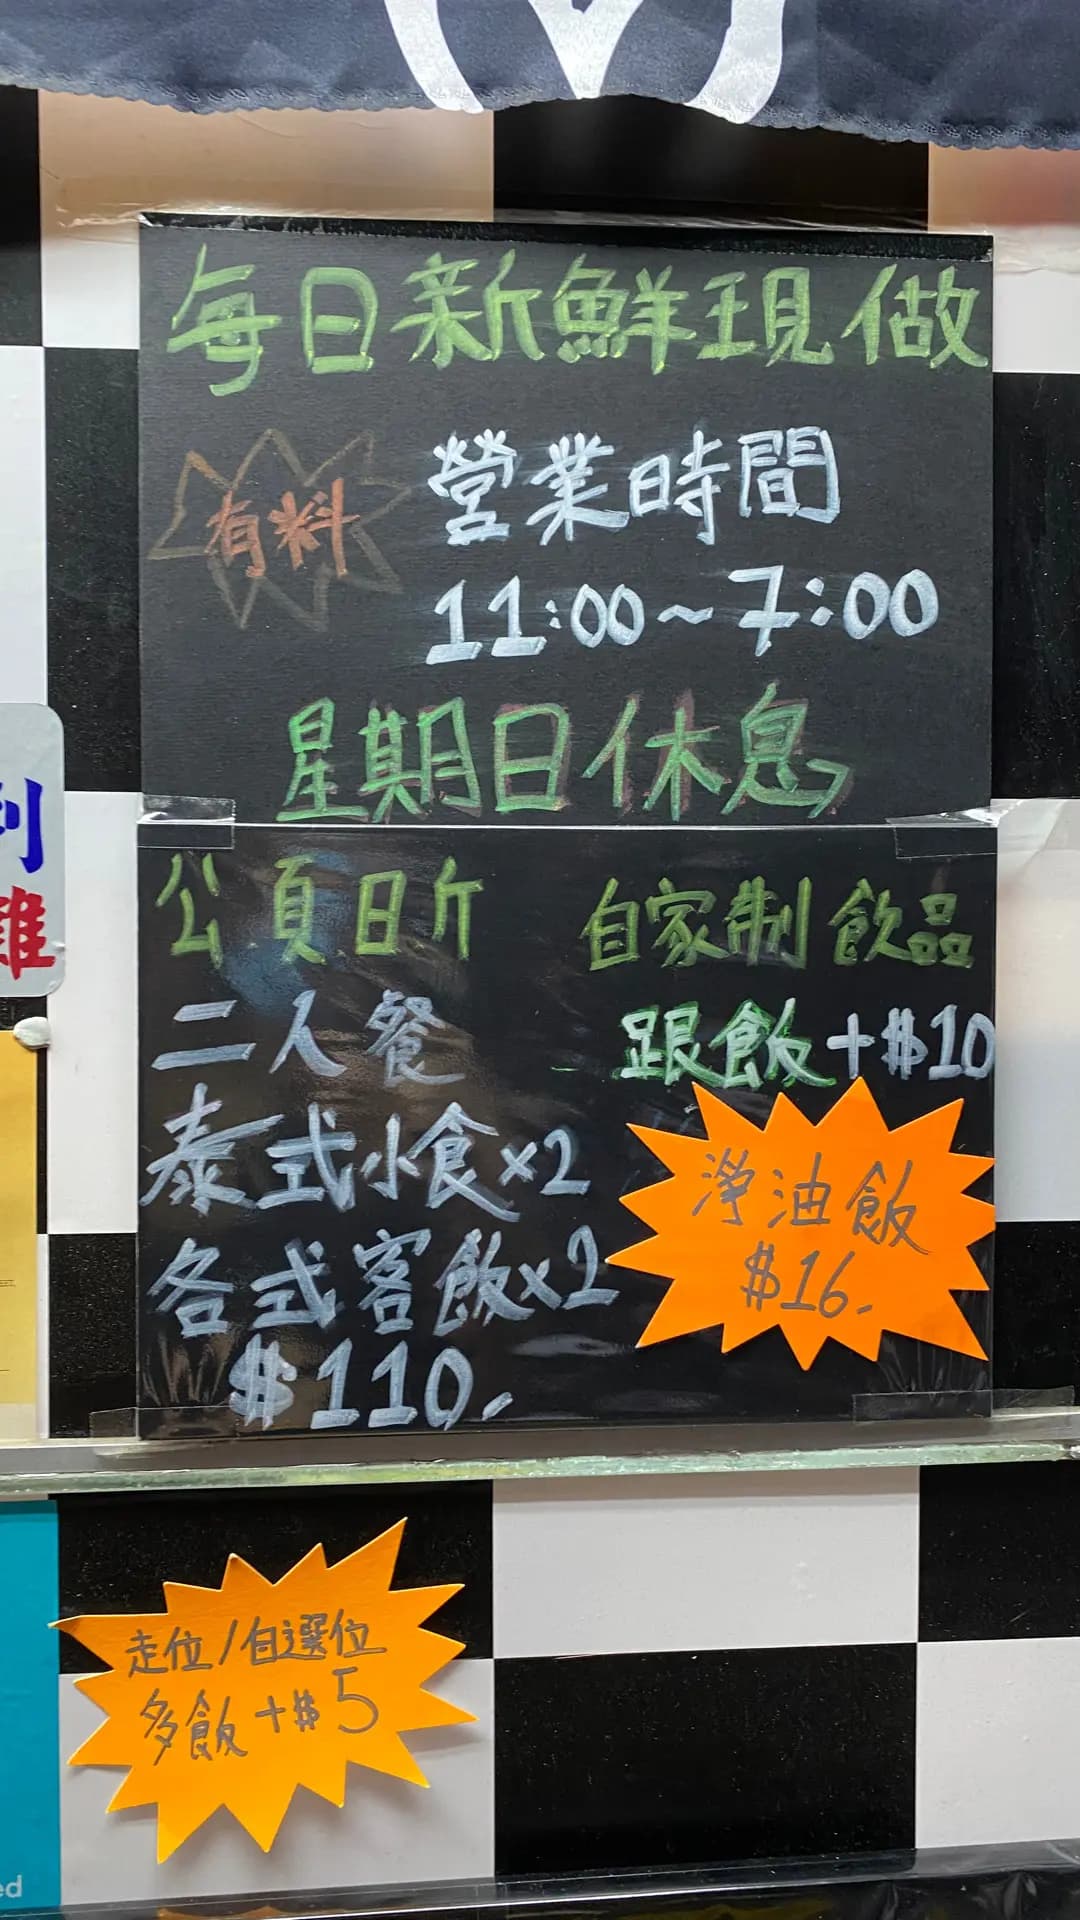 每日新鮮現做
有料
營業時間
11:00~7:00
星期日休息
公頁日斤
二人餐
泰式小食x2
各式客飯x2
$110.
自家制飲品
跟飯+$10
淨油飯
$16.
走位/自選位
多飯+$5
ed